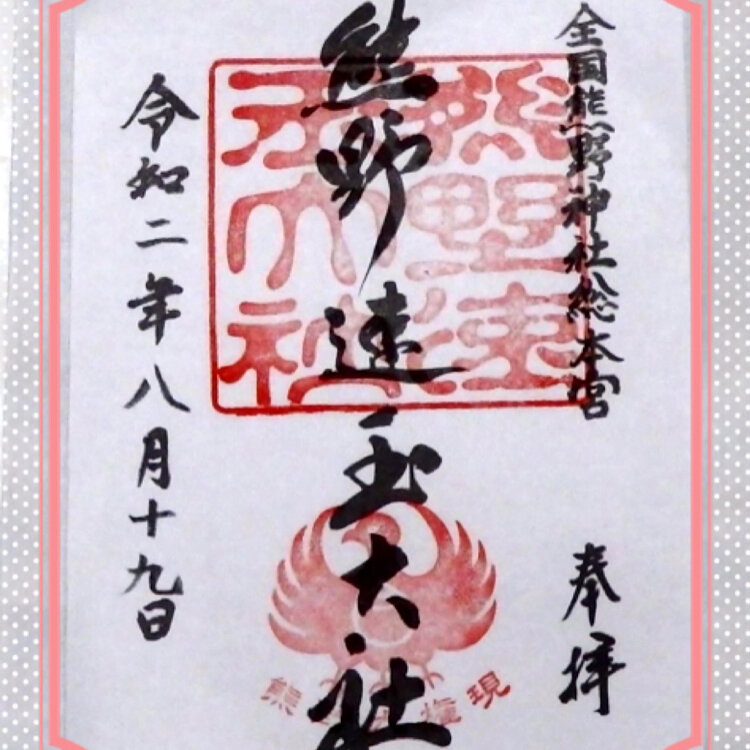 全国熊野神社総本宮
奉拝
熊野速玉大社
令和二年八月十九日
熊野速玉大社
熊野権現